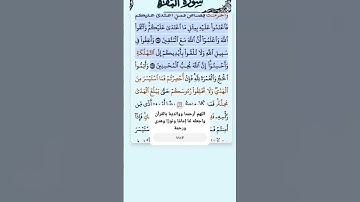 سورة البقرة
وَالْحُرُمَاتُ قِصَاصٌ فَمَنِ اعْتَدَىٰ عَلَيْكُمْ
فَاعْتَدُوا عَلَيْهِ بِمِثْلِ مَا اعْتَدَىٰ عَلَيْكُمْ وَاتَّقُوا
اللَّهَ وَاعْلَمُوا أَنَّ اللَّهَ مَعَ الْمُتَّقِينَ وَأَنفِقُوا فِي
سَبِيلِ اللَّهِ وَلَا تُلْقُوا بِأَيْدِيكُمْ إِلَى التَّهْلُكَةِ
وَأَحْسِنُوا إِنَّ اللَّهَ يُحِبُّ الْمُحْسِنِينَ وَأَتِمُّوا
الْحَجَّ وَالْعُمْرَةَ لِلَّهِ فَإِنْ أُحْصِرْتُمْ فَمَا اسْتَيْسَرَ مِنَ
الْهَدْيِ وَلَا تَحْلِقُوا رُءُوسَكُمْ حَتَّىٰ يَبْلُغَ الْهَدْيُ
مَحِلَّهُ أَذًى مِّن
اللهم أرحمنا ووالدينا بالقرآن
واجعله لنا إمامًا ونورًا وهدى
ورحمة